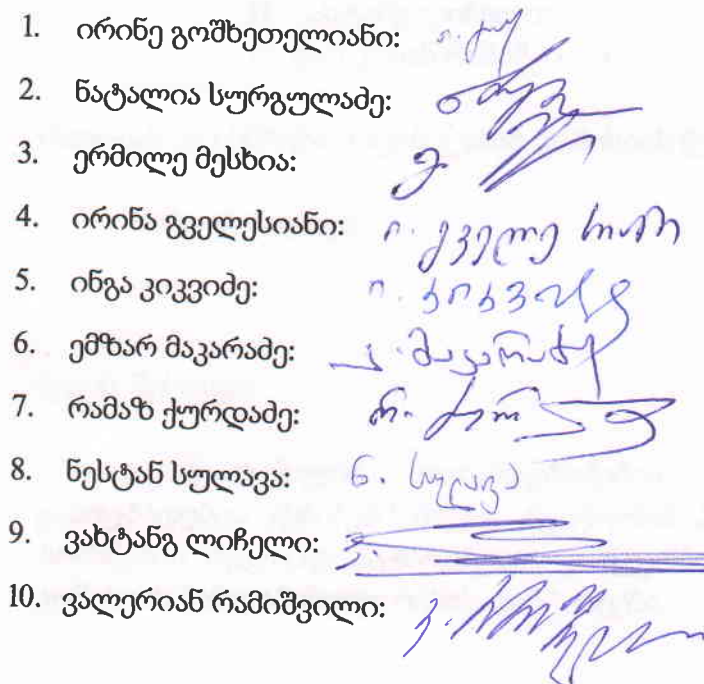 1. ირინე გოშხეთელიანი:
2. ნატალია სურგულაძე:
3. ერმილე მესხია:
4. ირინა გველესიანი: ი. გველესიანი
5. ინგა კიკვიძე: ი. კიკვიძე
6. ემზარ მაკარაძე: ე. მაკარაძე
7. რამაზ ქურდაძე: რ. ქურ
8. ნესტან სულავა: ნ. სულავა
9. ვახტანგ ლიჩელი:
10. ვალერიან რამიშვილი: